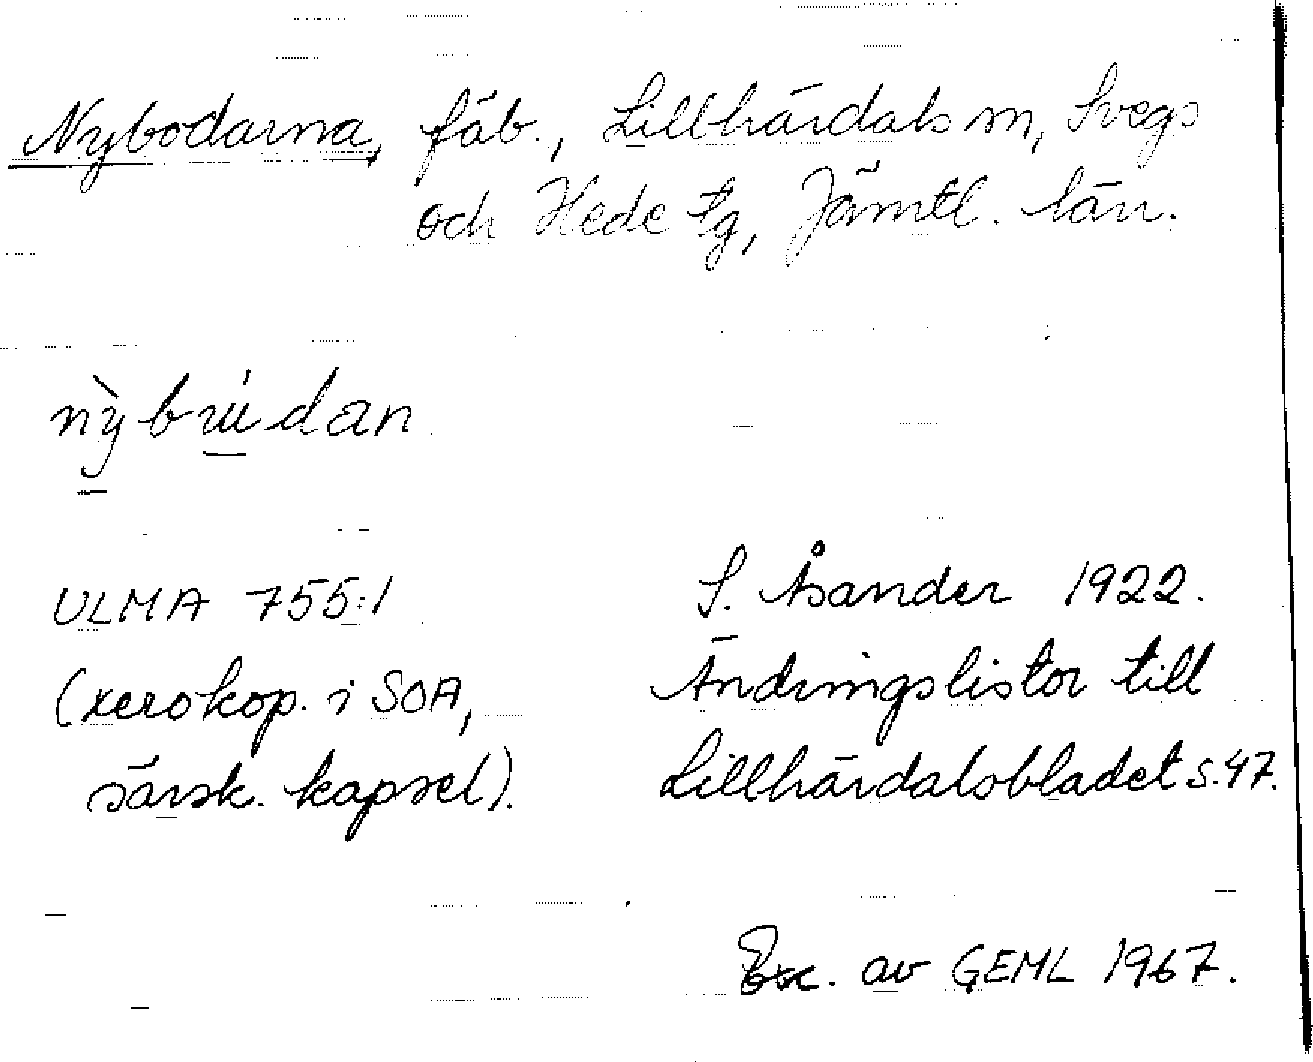 Nybodarna, fäb., Lillhärdals sn, Svegs
och Hede tg, Jämtl. län.
nỳbɯ́dan
ULMA 755:1
S. Åsander 1922.
(xerokop. i SOA,
Ändringslistor till
särsk. kapsel).
Lillhärdalsbladet s. 47.
Exc. av GEML 1967.